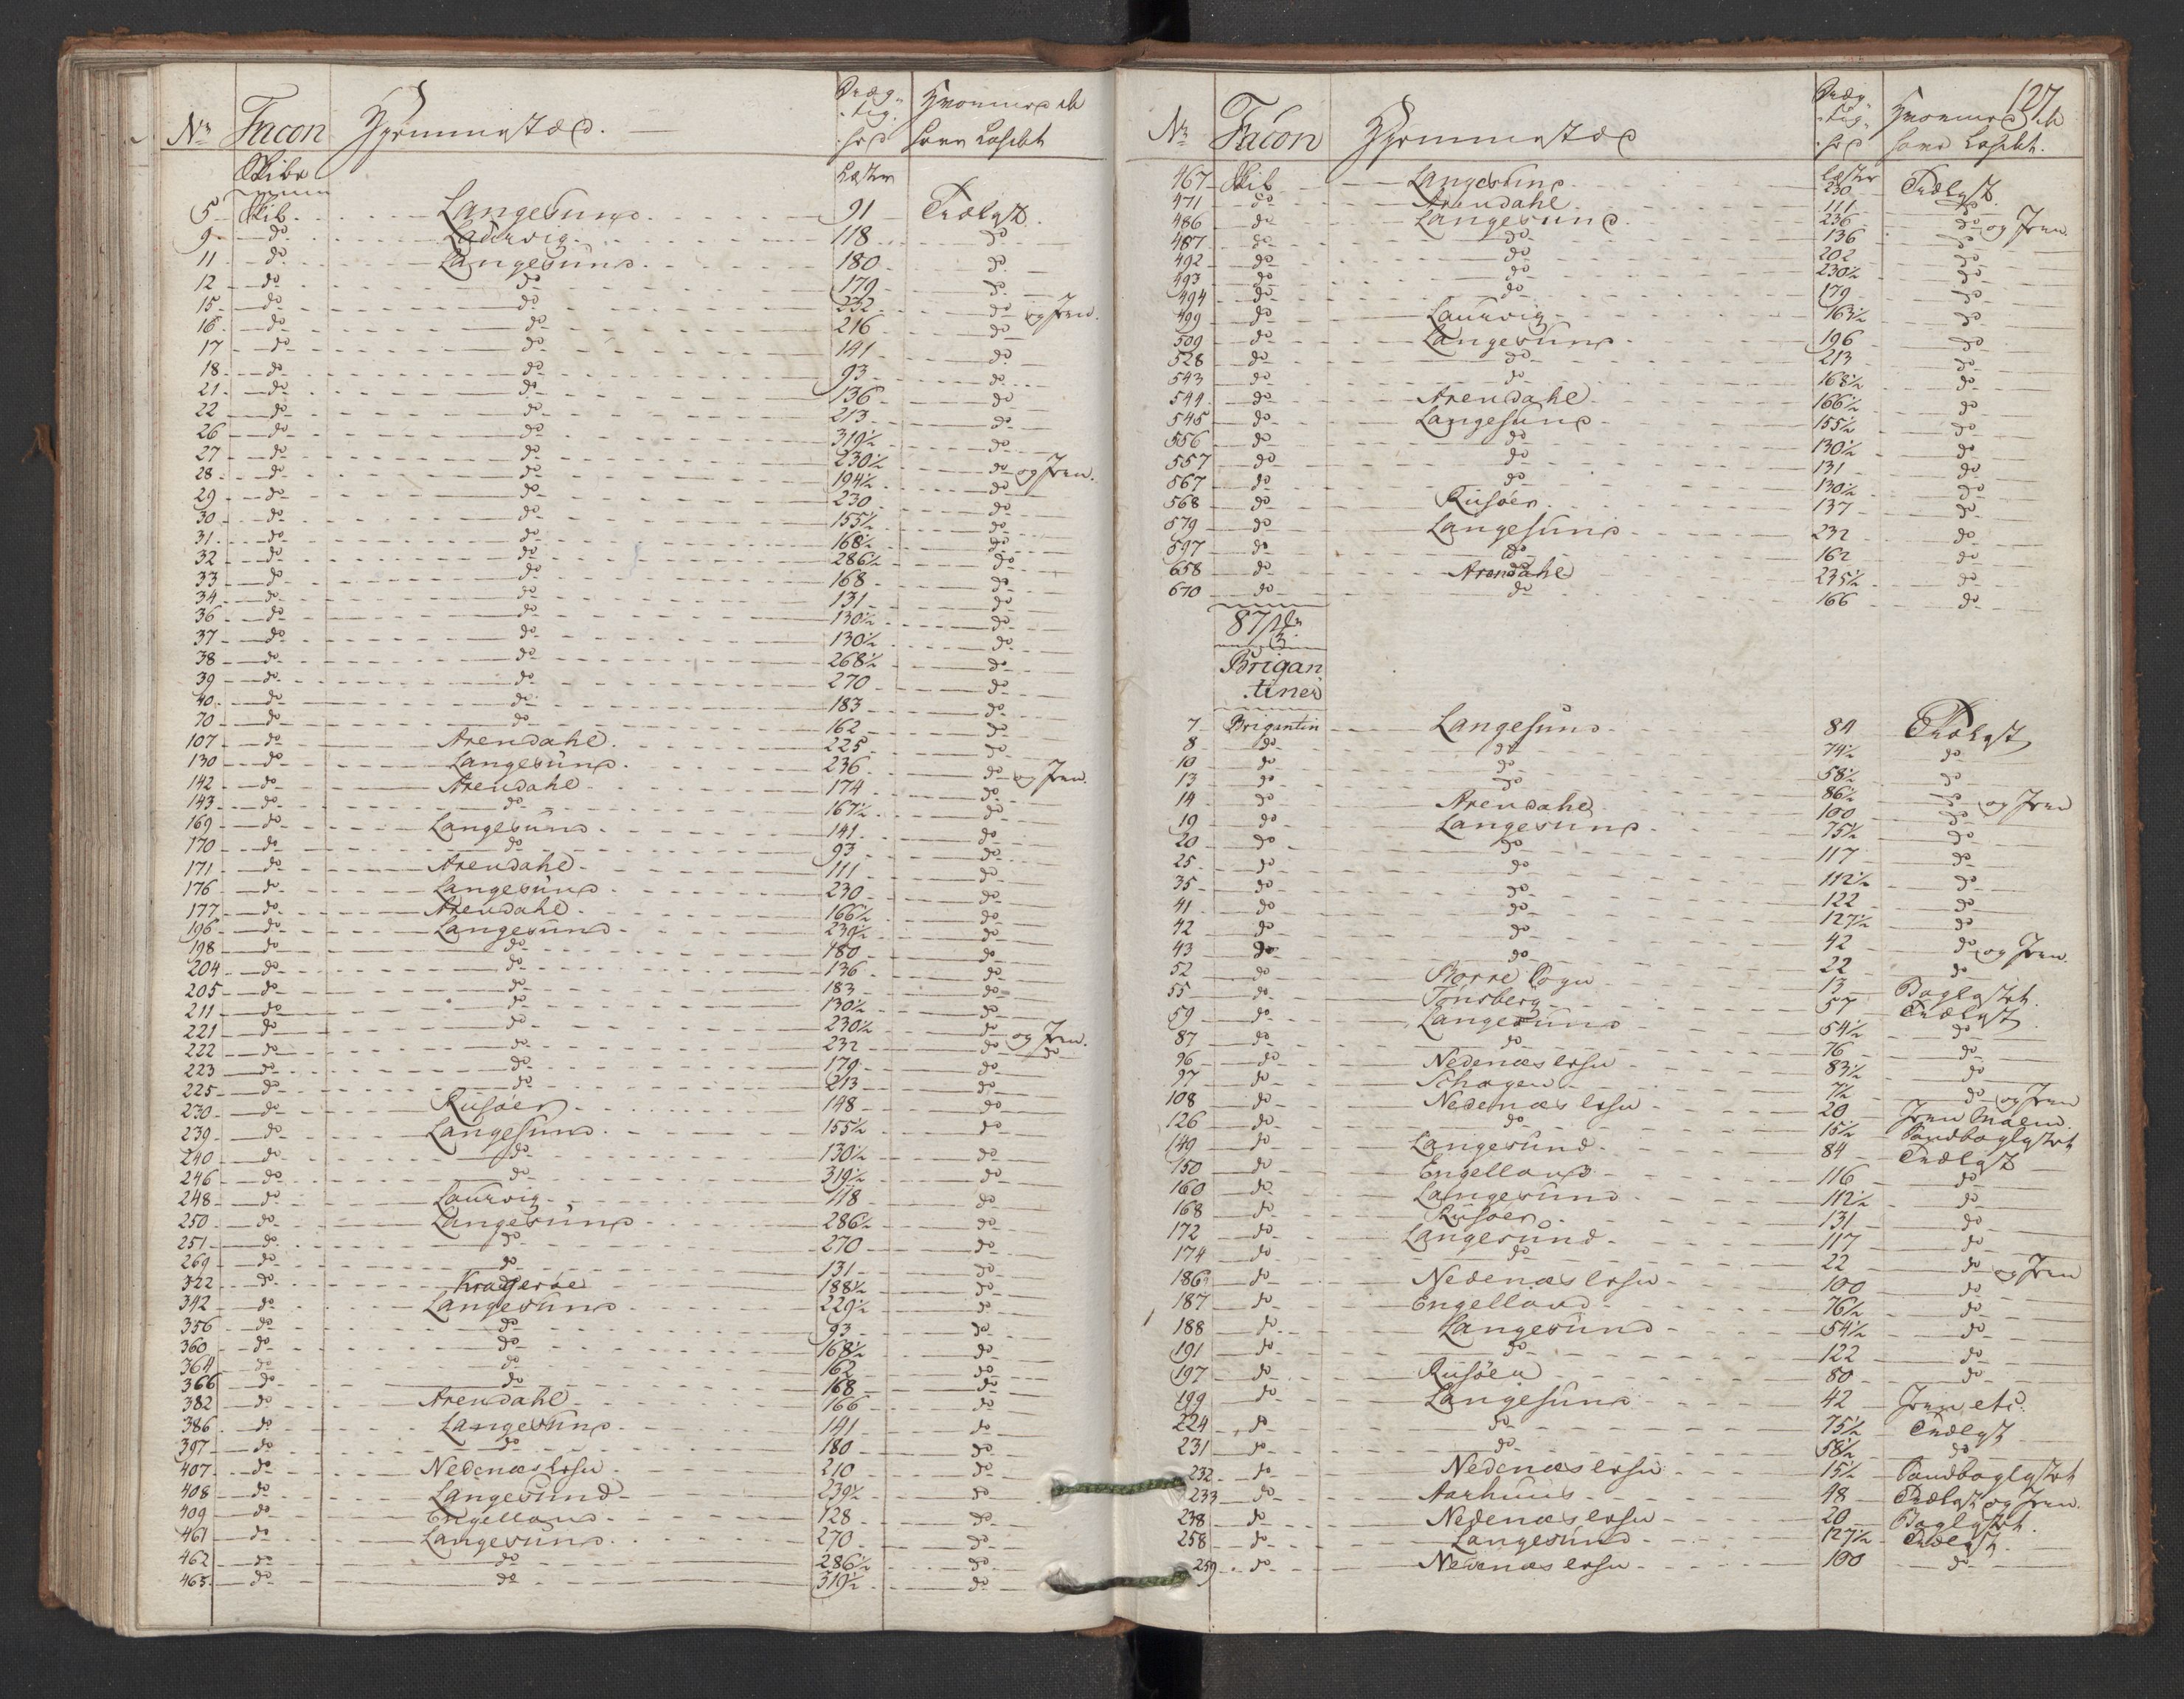 No Facon Hjemmested. Dræg- tig- hed Hvormed de have Lasedt
Skibe Læster
5 Skib Langesund 91 Trælast
9 do Laurvig 118 do
11 do Langesund 180 do
12 do do 179 do
15 do do 232 do og Jern.
16 do do 216 do
17 do do 141 do
18 do do 93 do
21 do do 136 do
22 do do 213 do
26 do do 319½ do
27 do do 230½ do og Jern.
28 do do 194½ do
29 do do 230 do
30 do do 155½ do
31 do do 168½ do
32 do do 286½ do
33 do do 168 do
34 do do 131 do
36 do do 130½ do
37 do do 130½ do
38 do do 268½ do
39 do do 270 do
40 do do 183 do
70 do do 162 do
107 do Arendahl 225 do
130 do Langesund 236 do og Jern.
142 do Arendahl 174 do
143 do do 167½ do
169 do Langesund 141 do
170 do do 93 do
171 do Arendahl 111 do
176 do Langesund 230 do
177 do Arendahl 166½ do
196 do Langesund 239½ do
198 do do 180 do
204 do do 136 do
205 do do 183 do
211 do do 130½ do
221 do do 230½ do og Jern.
222 do do 232 do do
223 do do 179 do
225 do do 213 do
230 do Riisöer 148 do
239 do Langesund 155½ do
240 do do 130½ do
246 do do 319½ do
248 do Laurvig 118 do
250 do Langesund 286½ do
251 do do 270 do
269 do do 131 do
322 do Kragerøe 188½ do
342 do Langesund 229½ do
356 do do 93 do
360 do do 168½ do
364 do do 162 do
366 do do 168 do
382 do Arendahl 166 do
386 do Langesund 141 do
397 do do 180 do
407 do Nedenæs Lehn 210 do
408 do Langesund 239½ do
409 do Engelland 128 do
461 do Langesund 270 do
462 do do 286½ do
465 do do 319½ do
127
No Facon Hjemmested Dræg- tig- hed Hvormed de have Lasedt.
Læster
467 Skib Langesund 230 Trælast
471 do Arendahl 111 do
486 do Langesund 236 do og Jern.
487 do do 136 do
492 do do 202 do
493 do do 230½ do
494 do do 179 do
499 do Laurvig 163½ do
509 do Langesund 196 do
528 do do 213 do
543 do do 168½ do
544 do Arendahl 166½ do
545 do Langesund 155½ do
556 do do 130½ do
557 do do 131 do
567 do do 130½ do
568 do Riisöer 137 do
579 do Langesund 232 do
597 do do 162 do
658 do Arendahl 235½ do
670 do do 166 do
87
Brigan-
tiner
7 Brigantin Langesund 84 Trælast
8 do do 74½ do
10 do do 58½ do
13 do do 86½ do og Jern
14 do Arendahl 100 do
19 do Langesund 75½ do
20 do do 117 do
25 do do 112½ do
35 do do 122 do
41 do do 127½ do
42 do do 42 do og Jern.
43 do do 22 do
52 do Borre Sogn 13 Baglastet
55 do Tønsberg 57 Trælast
59 do Langesund 54½ do
87 do do 76 do
96 do Nedenæs Lehn 83½ do
97 do Schagen 7½ do og Jern
108 do Nedenæs Lehn 20 Jern
126 do do 15½ Sandbaglastet
149 do Langesund 84 Trælast
150 do Engelland 116 do
160 do Langesund 112½ do
168 do Riisöer 131 do
172 do Langesund 117 do
174 do do 22 do og Jern
186 do Nedenæs Lehn 100 do
187 do Engelland 76½ do
188 do Langesund 54½ do
191 do do 122 do
197 do Riisöer 80 do
199 do Langesund 42 Jern etc.
224 do do 75½ Trælast
231 do do 58½ do
232 do Nedenæs Lehn 15½ Sandbaglastet
233 do Aarhuus 48 Trælast og Jern.
238 do Nedenæs Lehn 20 Baglastet.
258 do Langesund 127½ Trælast.
259 do Nedenæs Lehn 100 do